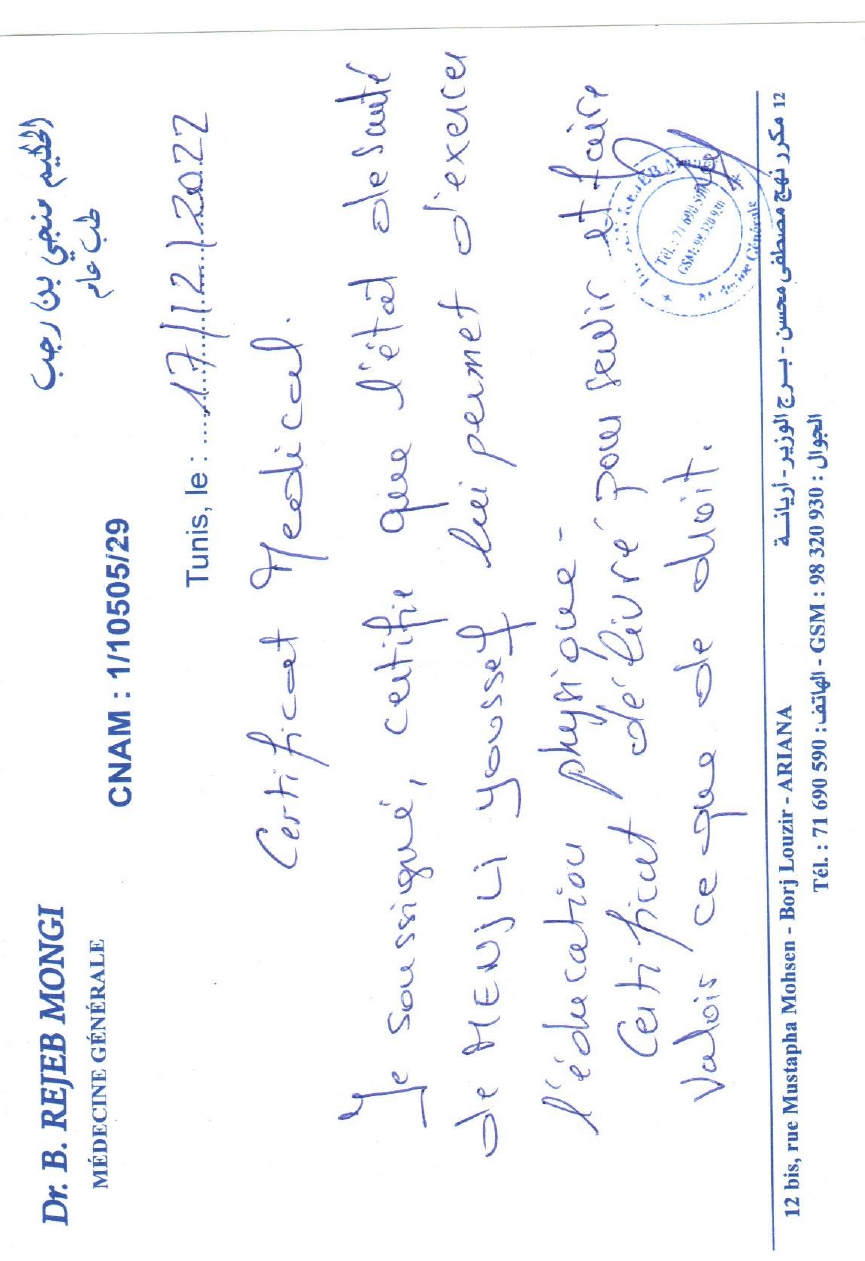 Dr. B. REJEB MONGI
MÉDECINE GÉNÉRALE
الحكيم منجي بن رجب
طب عام
CNAM : 1/10505/29
Tunis, le : 17/12/2022
Certificat Medical.
Je soussigné, certifie que l'état de santé
de MENJLI Youssef lui permet d'exercer
l'éducation physique -
Certificat délivré pour servir et faire
valoir ce que de droit.
REJEB
Tél. : 71 690 590
GSM: 98 320 930
Générale
12 bis, rue Mustapha Mohsen - Borj Louzir - ARIANA
12 مكرر نهج مصطفى محسن - برج الوزير - أريانة
Tél. : 71 690 590 : الهاتف - GSM : 98 320 930 : الجوال